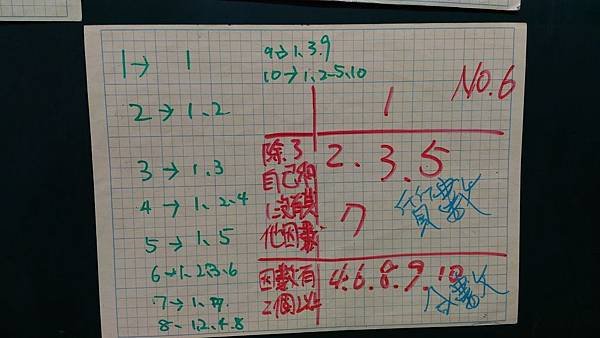 1→ 1
2→1、2
3→1、3
4→1、2、4
5→1、5
6→1、2、3、6
7→1、7
8-1、2、4、8
9→1、3、9
10→1、2、5、10
NO.6
1
除了
自己和
1沒有其
他因數
2、3、5
7
質數
因數有
2個以上
4、6、8、9、10
合數